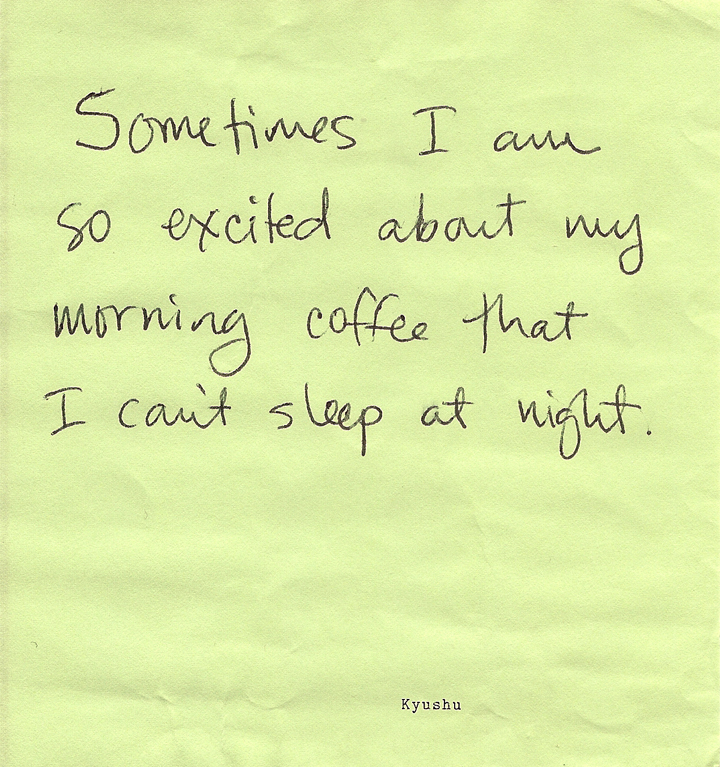 Sometimes I am
so excited about my
morning coffee that
I can't sleep at night.
Kyushu